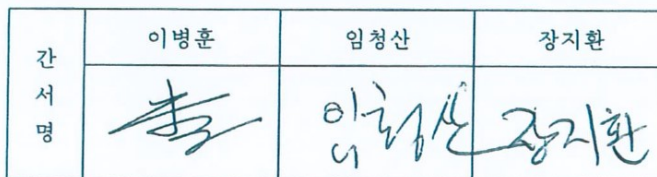 간서명
이병훈 임청산 장지환
李 임청산 장지환